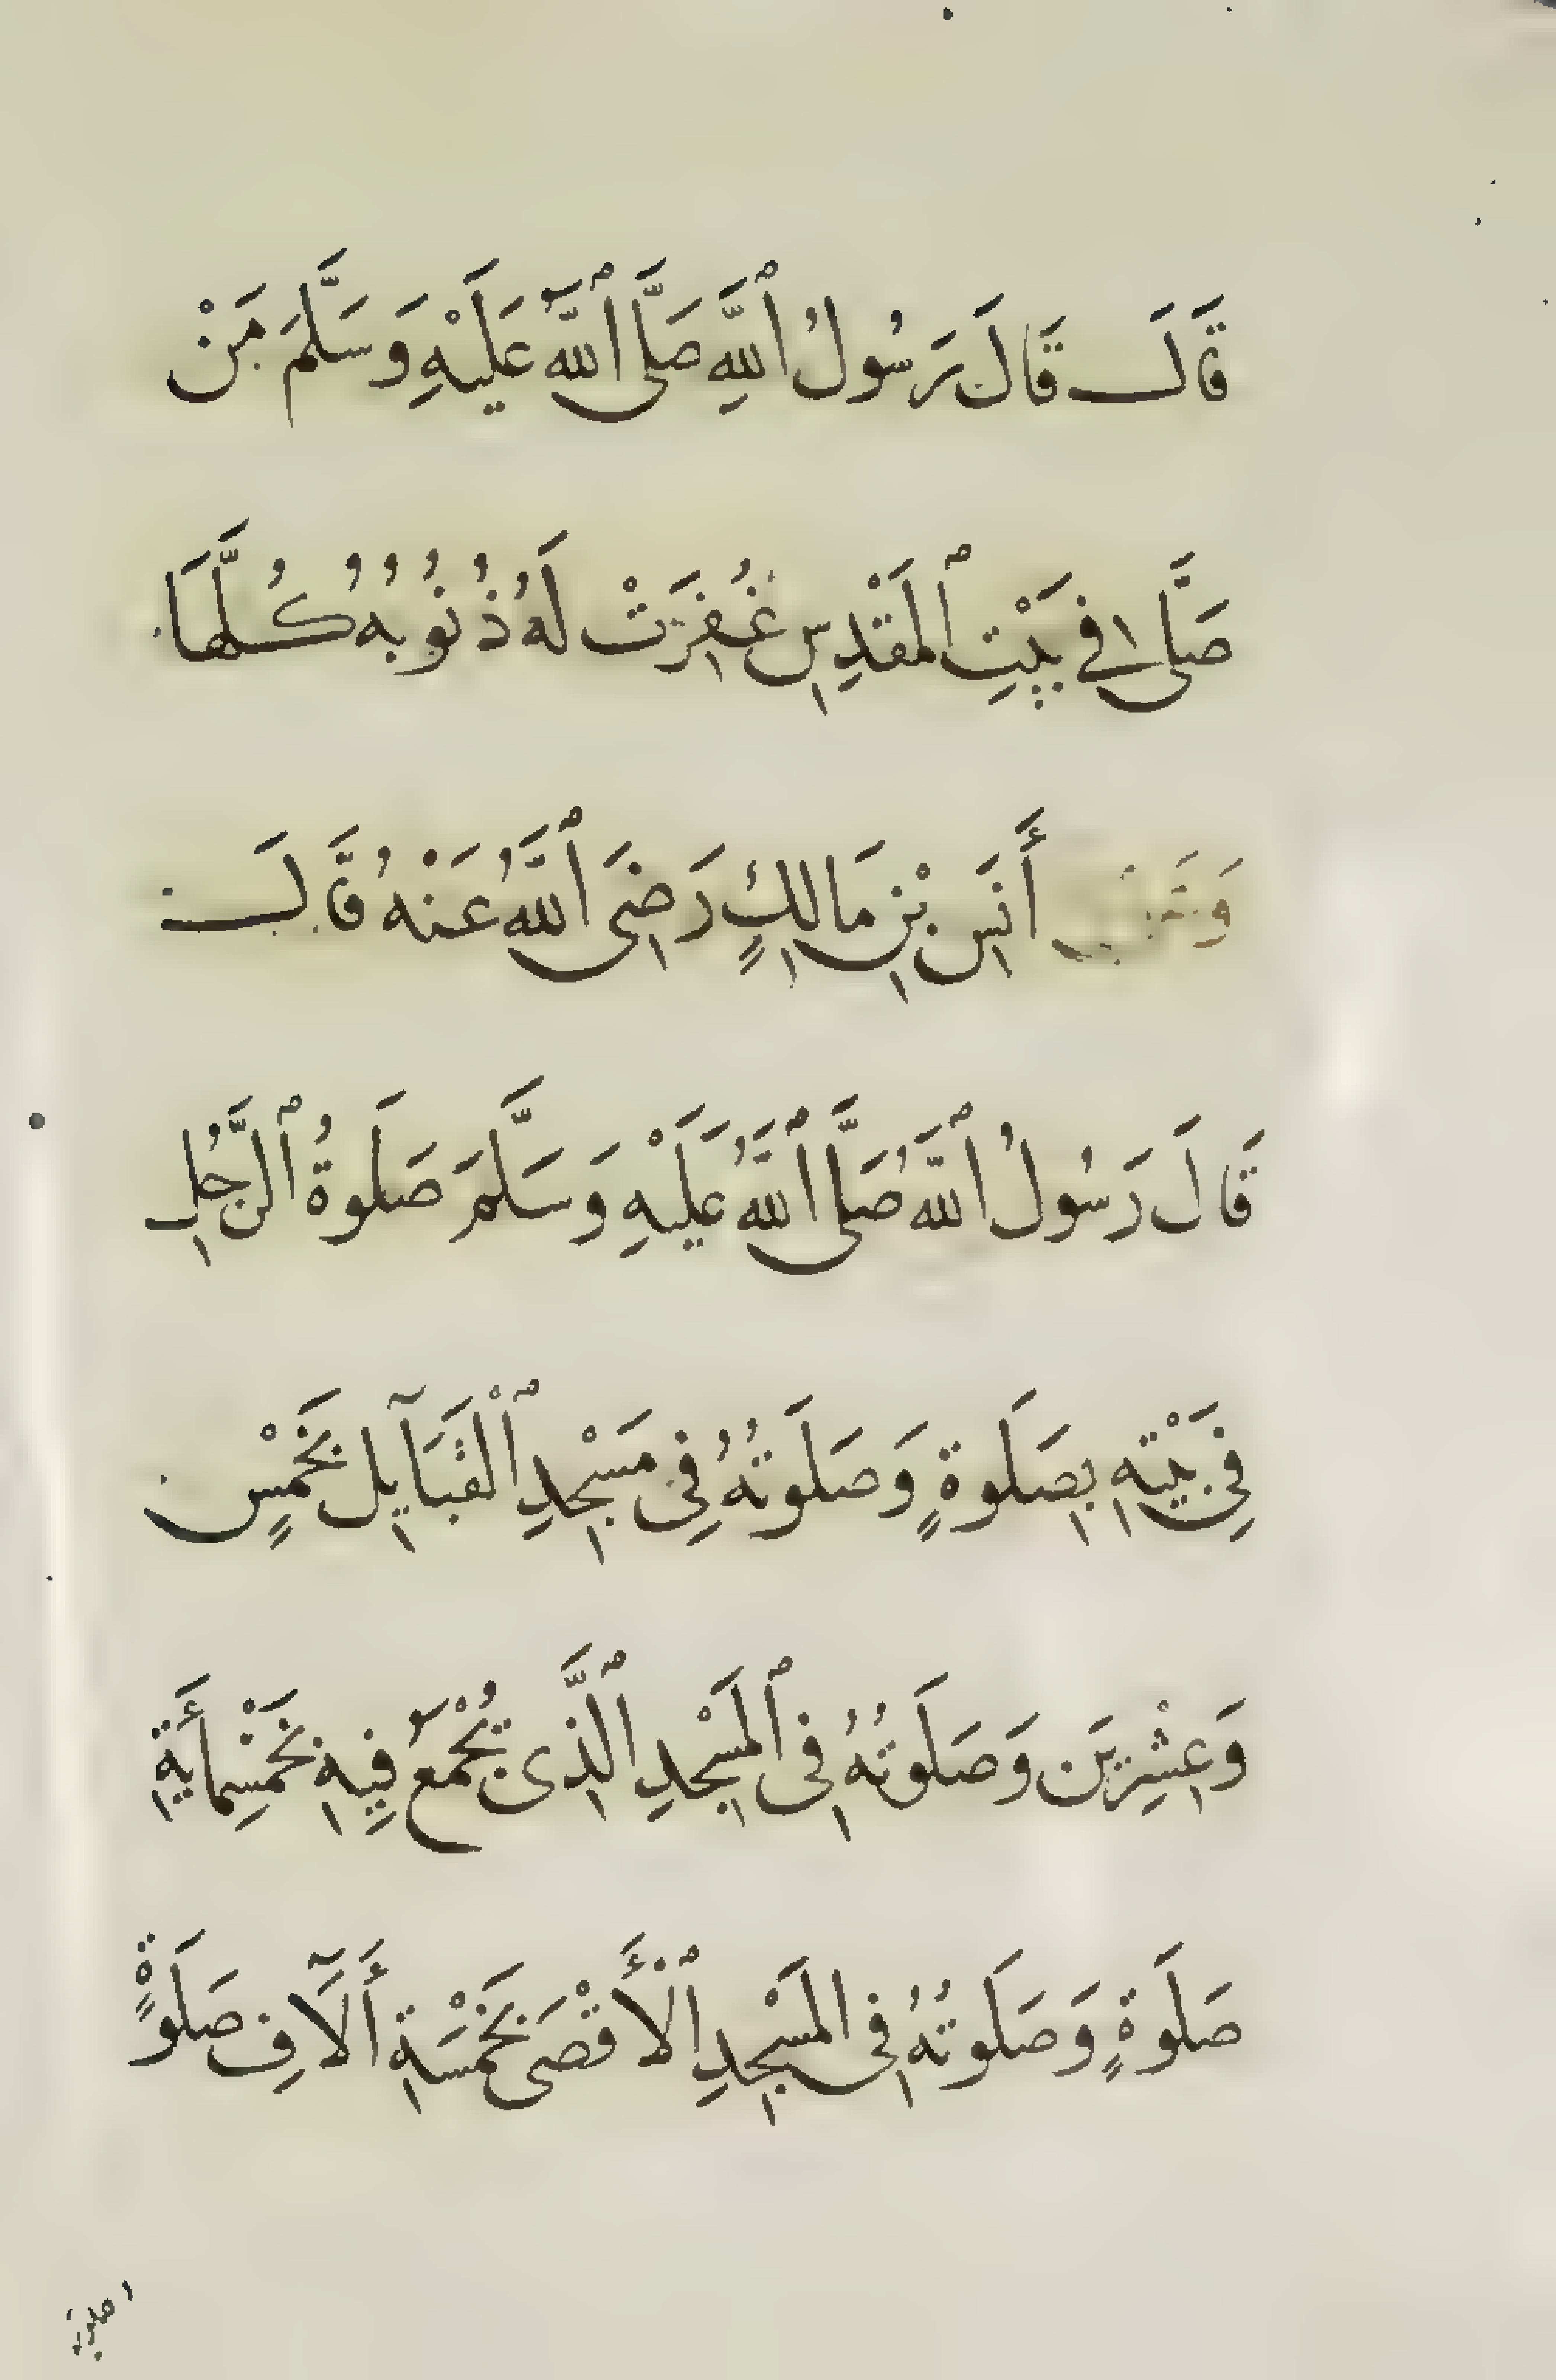 قَالَ قَالَ رَسُولُ ٱللَّهِ صَلَّى ٱللَّهُ عَلَيْهِ وَسَلَّمَ مَنْ
صَلَّى فِي بَيْتِ ٱلْمَقْدِسِ غُفِرَتْ لَهُ ذُنُوبُهُ كُلُّهَا
وَعَنْ أَنَسِ بْنِ مَالِكٍ رَضِيَ ٱللَّهُ عَنْهُ قَالَ
قَالَ رَسُولُ ٱللَّهِ صَلَّى ٱللَّهُ عَلَيْهِ وَسَلَّمَ صَلَوةُ ٱلرَّجُلِ
فِي بَيْتِهِ بِصَلَوةٍ وَصَلَوتُهُ فِي مَسْجِدِ ٱلْقَبَآيِلِ بِخَمْسٍ
وَعِشْرِينَ وَصَلَوتُهُ فِي ٱلْمَسْجِدِ ٱلَّذِي يُجْمَعُ فِيهِ بِخَمْسِمِأَيَةِ
صَلَوةٍ وَصَلَوتُهُ فِي الْمَسْجِدِ ٱلْأَقْصَى بِخَمْسَةِ أَلَآفِ صَلَوةٍ